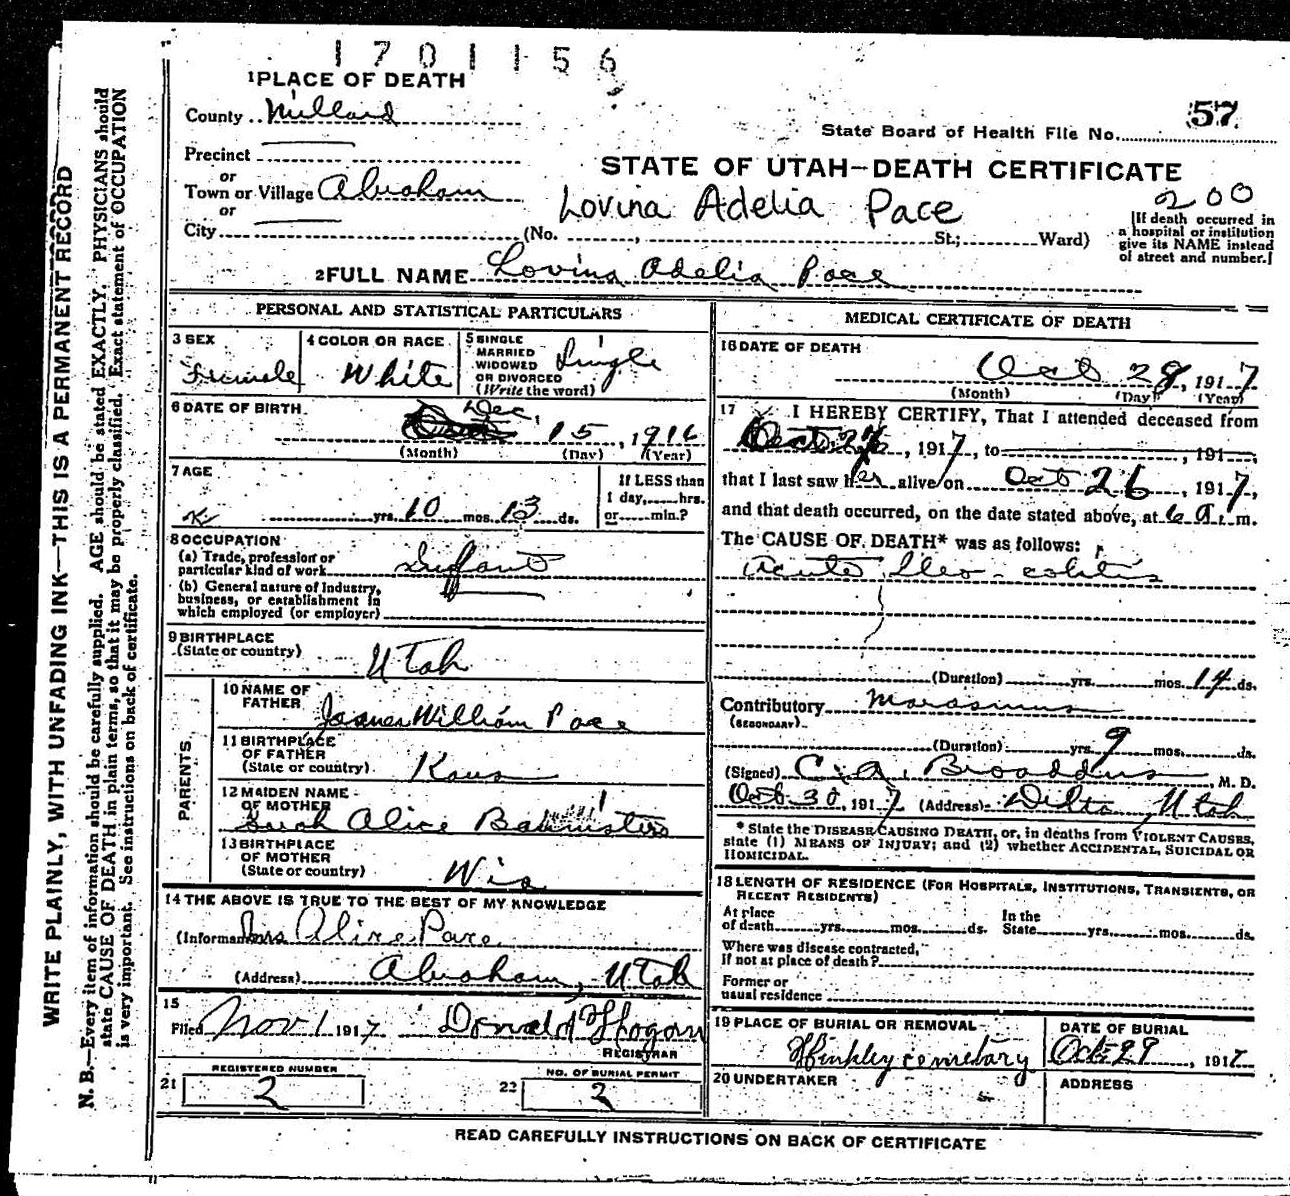 1701156
1 PLACE OF DEATH
County Millard
57
State Board of Health File No.
Precinct
STATE OF UTAH—DEATH CERTIFICATE
or
Town or Village Abraham
Lovina Adelia Pace
200
or
City (No. , St.; Ward)
[If death occurred in
a hospital or institution
give its NAME instead
of street and number.]
2 FULL NAME Lovina Adelia Pace
PERSONAL AND STATISTICAL PARTICULARS
3 SEX
Female
4 COLOR OR RACE
White
5 SINGLE
MARRIED
WIDOWED
OR DIVORCED
(Write the word)
Single
6 DATE OF BIRTH
Dec. 15, 1916
(Month) (Day) (Year)
7 AGE
yrs. 10 mos. 13 ds.
If LESS than
1 day, hrs.
or min.?
8 OCCUPATION
(a) Trade, profession or
particular kind of work Infant
(b) General nature of Industry,
business, or establishment in
which employed (or employer)
9 BIRTHPLACE
(State or country)
Utah
PARENTS
10 NAME OF
FATHER James William Pace
11 BIRTHPLACE
OF FATHER
(State or country) Kans
12 MAIDEN NAME
OF MOTHER
Alice
13 BIRTHPLACE
OF MOTHER
(State or country) Wis
14 THE ABOVE IS TRUE TO THE BEST OF MY KNOWLEDGE
(Informant) Mrs Alice Pace
(Address) Abraham, Utah
15
Filed Nov 1 1917 Donald Hogan
REGISTRAR
REGISTERED NUMBER
21 2
NO. OF BURIAL PERMIT
22 2
MEDICAL CERTIFICATE OF DEATH
16 DATE OF DEATH
Oct 28, 1917
(Month) (Day) (Year)
17 I HEREBY CERTIFY, That I attended deceased from
Oct 26, 1917, to , 191 ,
that I last saw her alive on Oct 26, 1917,
and that death occurred, on the date stated above, at 6 a.m.
The CAUSE OF DEATH* was as follows:
Acute Ileo-colitis
(Duration) yrs. mos. 14 ds.
Contributory Marasmus
(SECONDARY)
(Duration) yrs. 9 mos. ds.
(Signed) C. A. Broaddus, M. D.
Oct 30, 1917 (Address) Delta, Utah
* State the DISEASE CAUSING DEATH, or, in deaths from VIOLENT CAUSES,
state (1) MEANS OF INJURY; and (2) whether ACCIDENTAL, SUICIDAL OR
HOMICIDAL.
18 LENGTH OF RESIDENCE (FOR HOSPITALS, INSTITUTIONS, TRANSIENTS, OR
RECENT RESIDENTS)
At place
of death yrs. mos. ds.
In the
State yrs. mos. ds.
Where was disease contracted,
If not at place of death?
Former or
usual residence
19 PLACE OF BURIAL OR REMOVAL
Hinkley cemetary
DATE OF BURIAL
Oct 29, 1917
20 UNDERTAKER
ADDRESS
READ CAREFULLY INSTRUCTIONS ON BACK OF CERTIFICATE
WRITE PLAINLY, WITH UNFADING INK—THIS IS A PERMANENT RECORD
N. B.—Every item of information should be carefully supplied. AGE should be stated EXACTLY. PHYSICIANS should
state CAUSE OF DEATH in plain terms, so that it may be properly classified. Exact statement of OCCUPATION
is very important. See instructions on back of certificate.